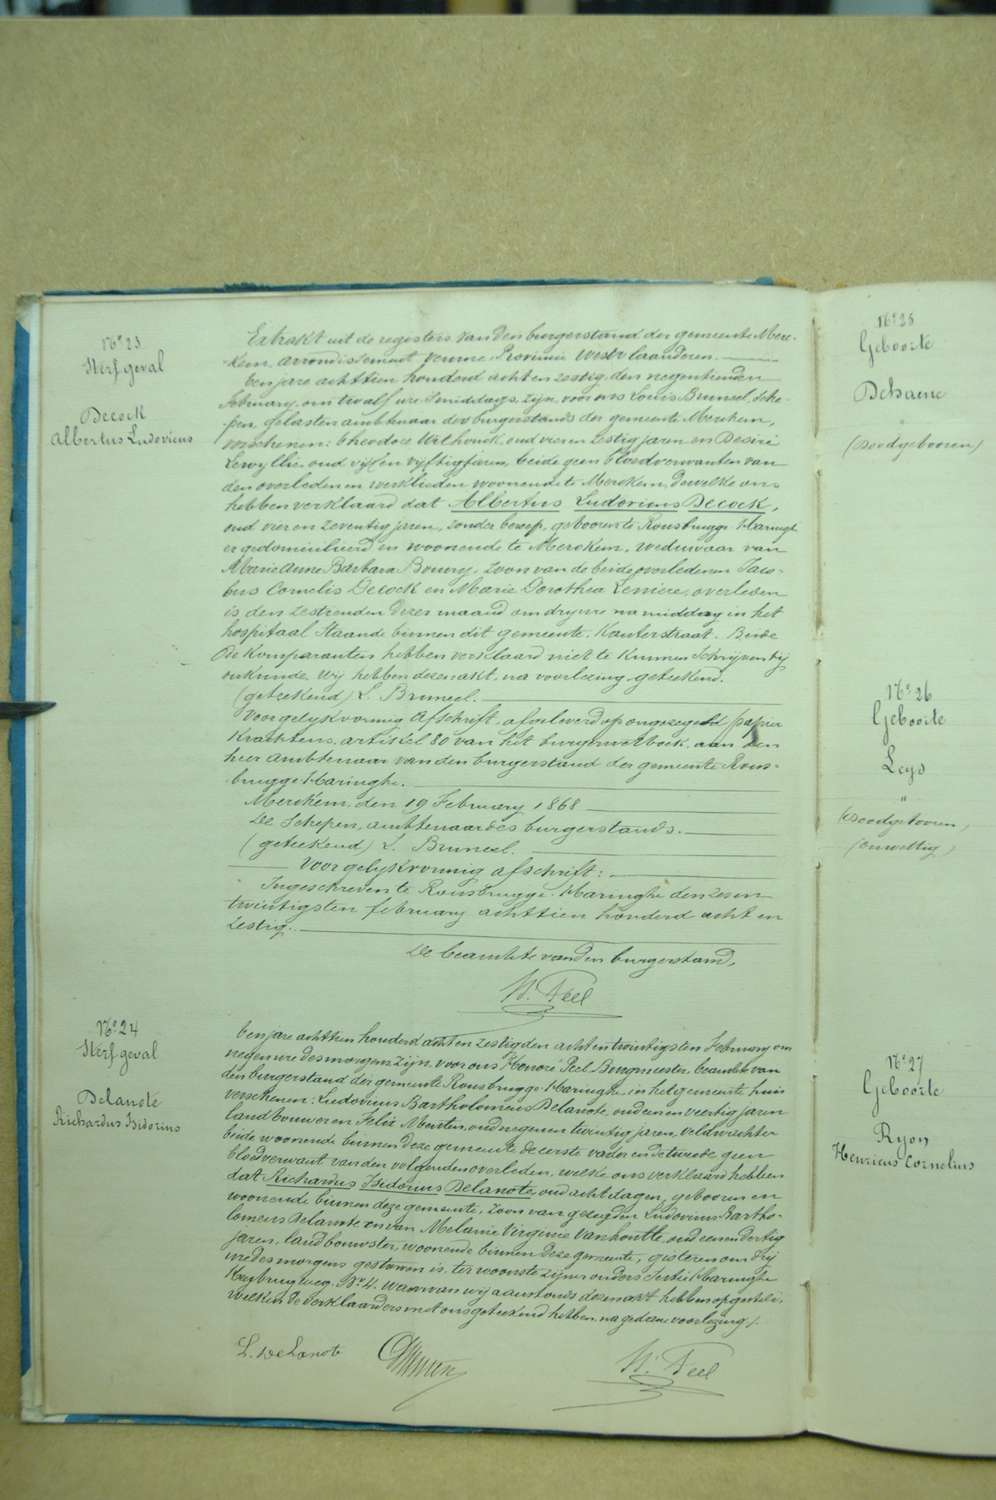 N° 23
Sterfgeval
Decock
Albertus Ludovicus
Extrakt uit de registers van den burgerstand der gemeente Merc-
kem, arrondissement Veurne Provincie Westvlaanderen.
Ten jare achttien honderd acht en zestig, den negentienden
February, om twaalf ure 's middags, zyn voor ons Louis Bruneel, Sche-
pen, gelasten ambtenaar der burgerstands der gemeente Merckem,
verschenen: Theodore Withouck, oud vier en zestig jaren en Desiré
Lewyllie, oud vyf en vyftig jaren, beide geen bloedverwanten van
den overleden en werklieden woonende te Merckem, dewelke ons
hebben verklaard dat Albertus Ludovicus Decock,
oud vier en zeventig jaren, zonder beroep, geboren te Rousbrugge-Haringhe
er gedomicilieerd en woonende te Merckem, weduwaar van
Marie Anne Barbara Boury, zoon van de beide overledenen Jaco-
bus Cornelis Decock en Marie Dorothea Leniere, overleden
is den zestienden dezer maand om dry ure namiddag in het
hospitaal staande binnen dit gemeente, Kouterstraat. Beide
de komparanten hebben verklaard niet te kunnen schryven by
oirkunde, wy hebben dezen akt, na voorlezing, geteekend.
(geteekend) L. Bruneel.
Voor gelykvormig afschrift, afgeleverd op ongezegeld papier
krachtens artikel 80 van het burgerwetboek, aan den
heer ambtenaar van den burgerstand der gemeente Rous-
brugge-Haringhe.
Merckem, den 19 February 1868
De Schepen, ambtenaar des burgerstands.
(geteekend) L. Bruneel.
Voor gelykvormig afschrift:
Ingeschreven te Rousbrugge-Haringhe den zes en
twintigsten february achttien honderd acht en
zestig.
De beambte van den burgerstand,
H. Peel
N° 24
Sterfgeval
Delanote
Richardus Isidorius
Ten jare achttien honderd acht en zestig den acht en twintigsten February om
negen ure des morgens, zyn voor ons Honoré Peel Burgmeester, beambte van
den burgerstand der gemeente Rousbrugge-Haringhe, in het gemeente huis
verschenen: Ludovicus Bartholomeus Delanote, oud een en veertig jaren
landbouwer en Felix Meuten, oud negen en twintig jaren, veldwachter
beide woonende binnen deze gemeente de eerste vader en de tweede geen
bloedverwant van den volgenden overleden, welke ons verklaard hebben
dat Richardus Isidorius Delanote, oud acht dagen, geboren en
woonende binnen deze gemeente, zoon van gezegden Ludovicus Bartho-
lomeus Delanote en van Melanie Virginie Vanhoutte, oud een en dertig
jaren, landbouwster, woonende binnen deze gemeente, gisteren om dry
ure des morgens gestorven is, ter woonste zyner ouders sectie Haringhe
N° 4. Waarvan wy aanstonds dezen akt hebben opgesteld,
welken de verklaarders met ons geteekend hebben, na gedane voorlezing.
L. DeLanote
H. Peel
N° 25
Geboorte
Dehaene
(doodgeboren)
N° 26
Geboorte
Leys
"
(doodgeboren,
(onwettig)
N° 27
Geboorte
Ryon
Henricus Cornelius